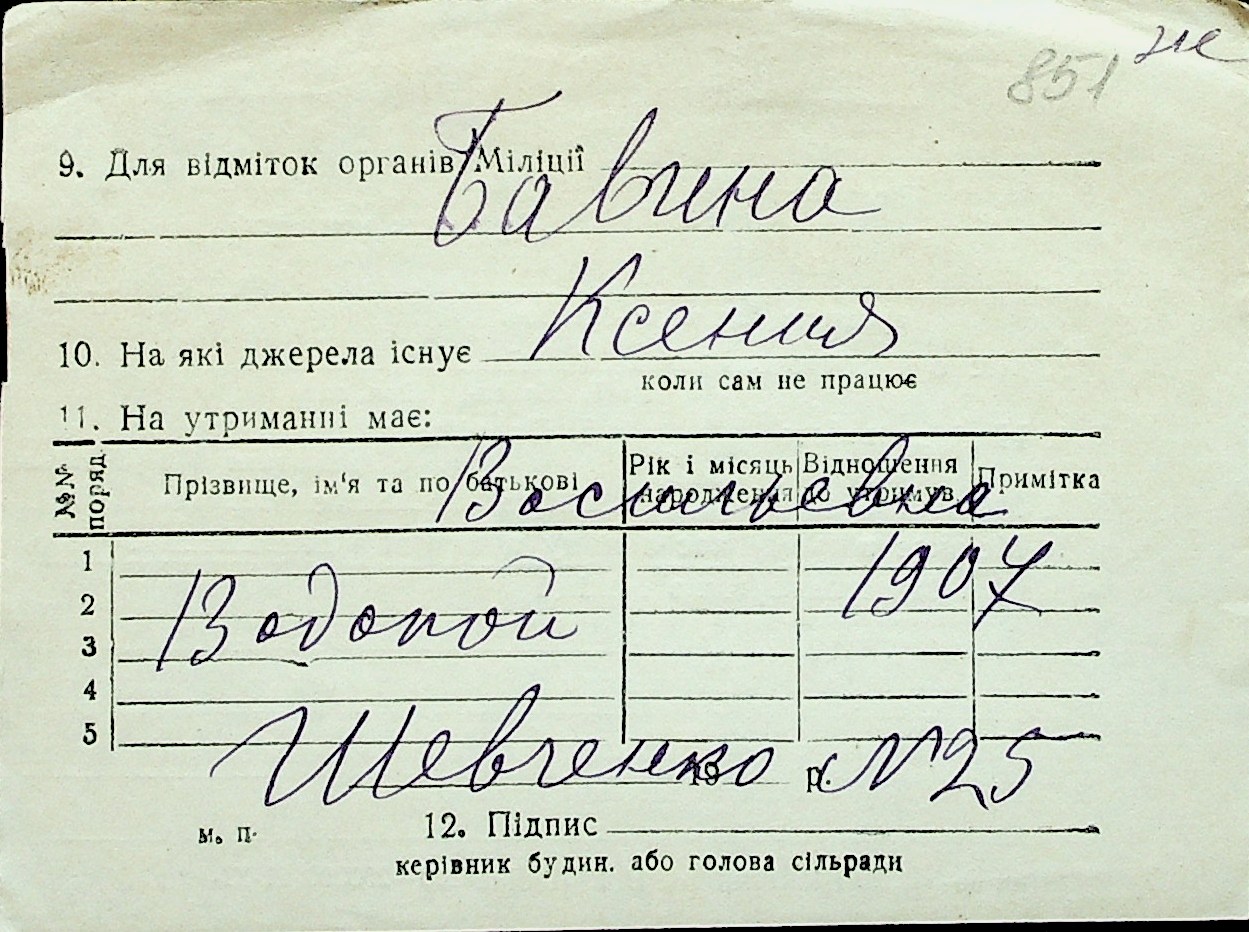 851 же
9. Для відміток органів Міліції
Бавина
Ксения
10. На які джерела існує
коли сам не працює
11. На утриманні має:
№№ поряд. Прізвище, ім'я та по батькові Рік і місяць народження Відношення до утримув. Примітка
Васильевна
1
1907
2
Водопой
3
4
5
Шевченко №25
19 р.
м. п. 12. Підпис
керівник будин. або голова сільради